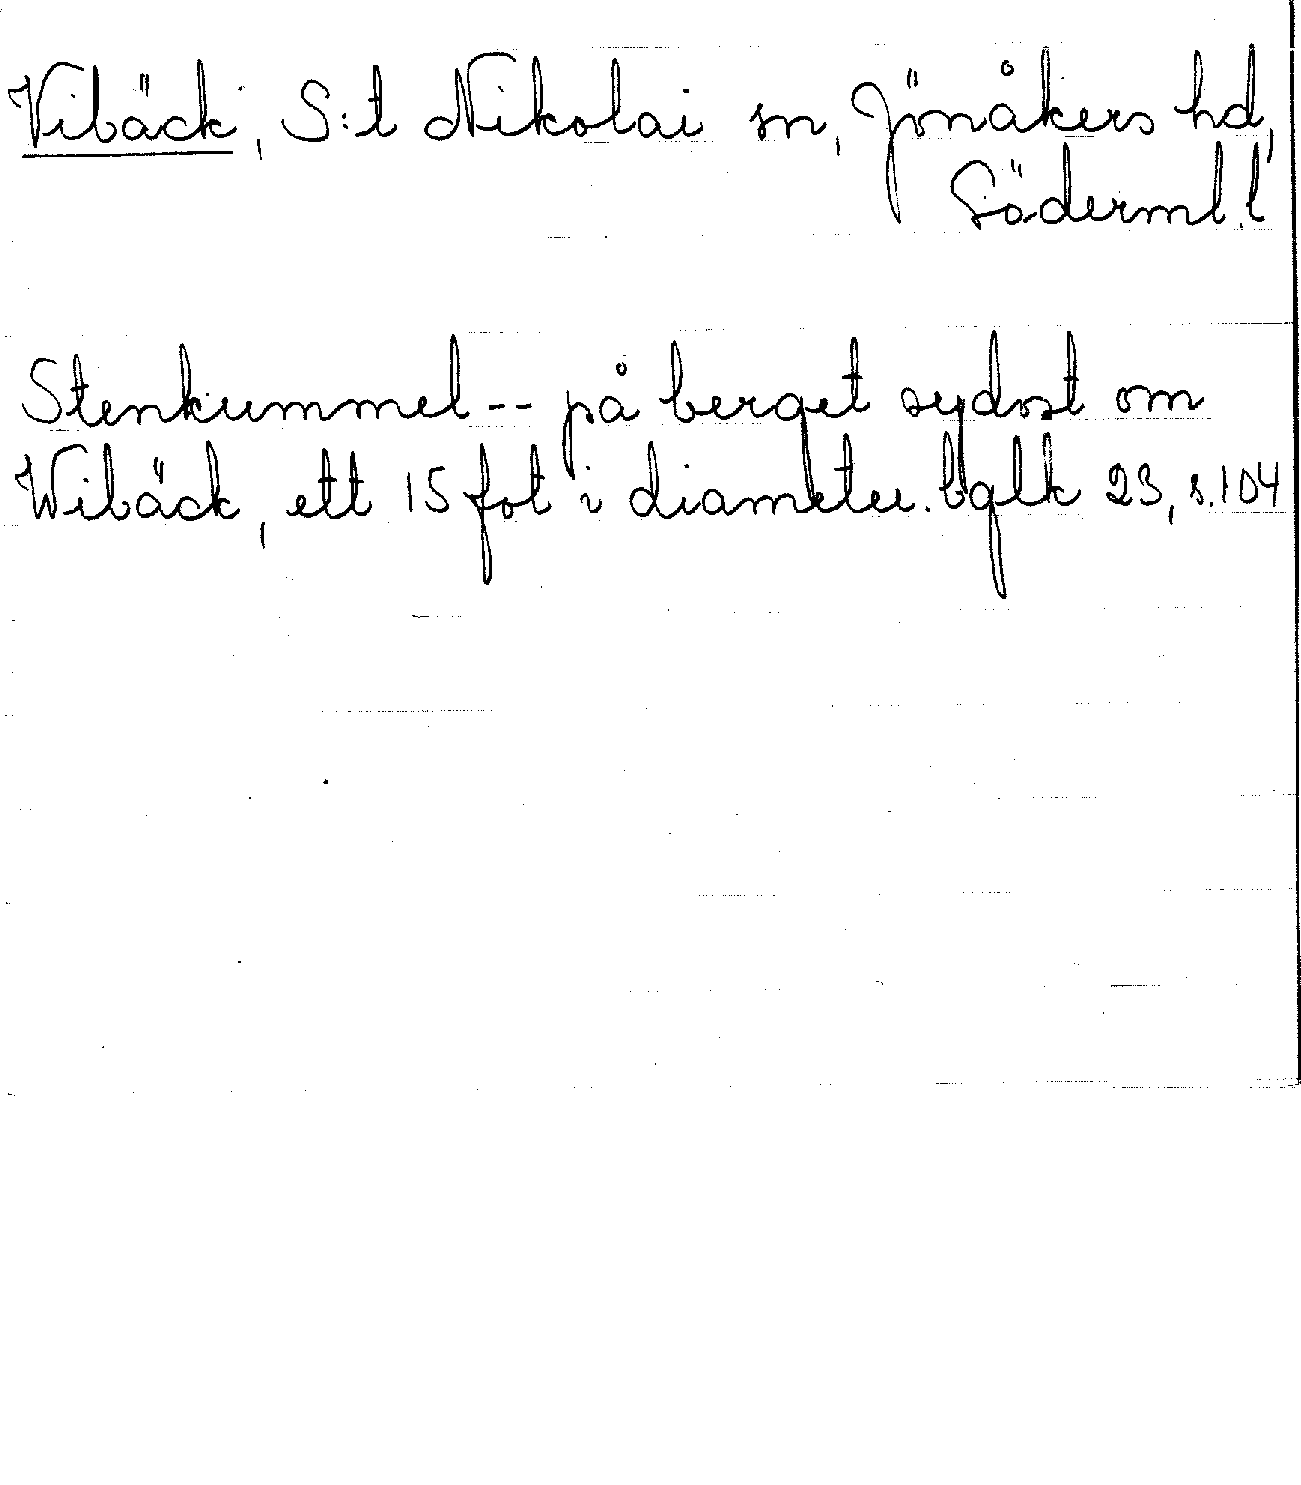 Vibäck, S:t Nikolai sn, Jönåkers hd,
Söderml.l
Stenkummel -- på berget sydost om
Wibäck, ett 15 fot i diameter. bglk 23, s.104